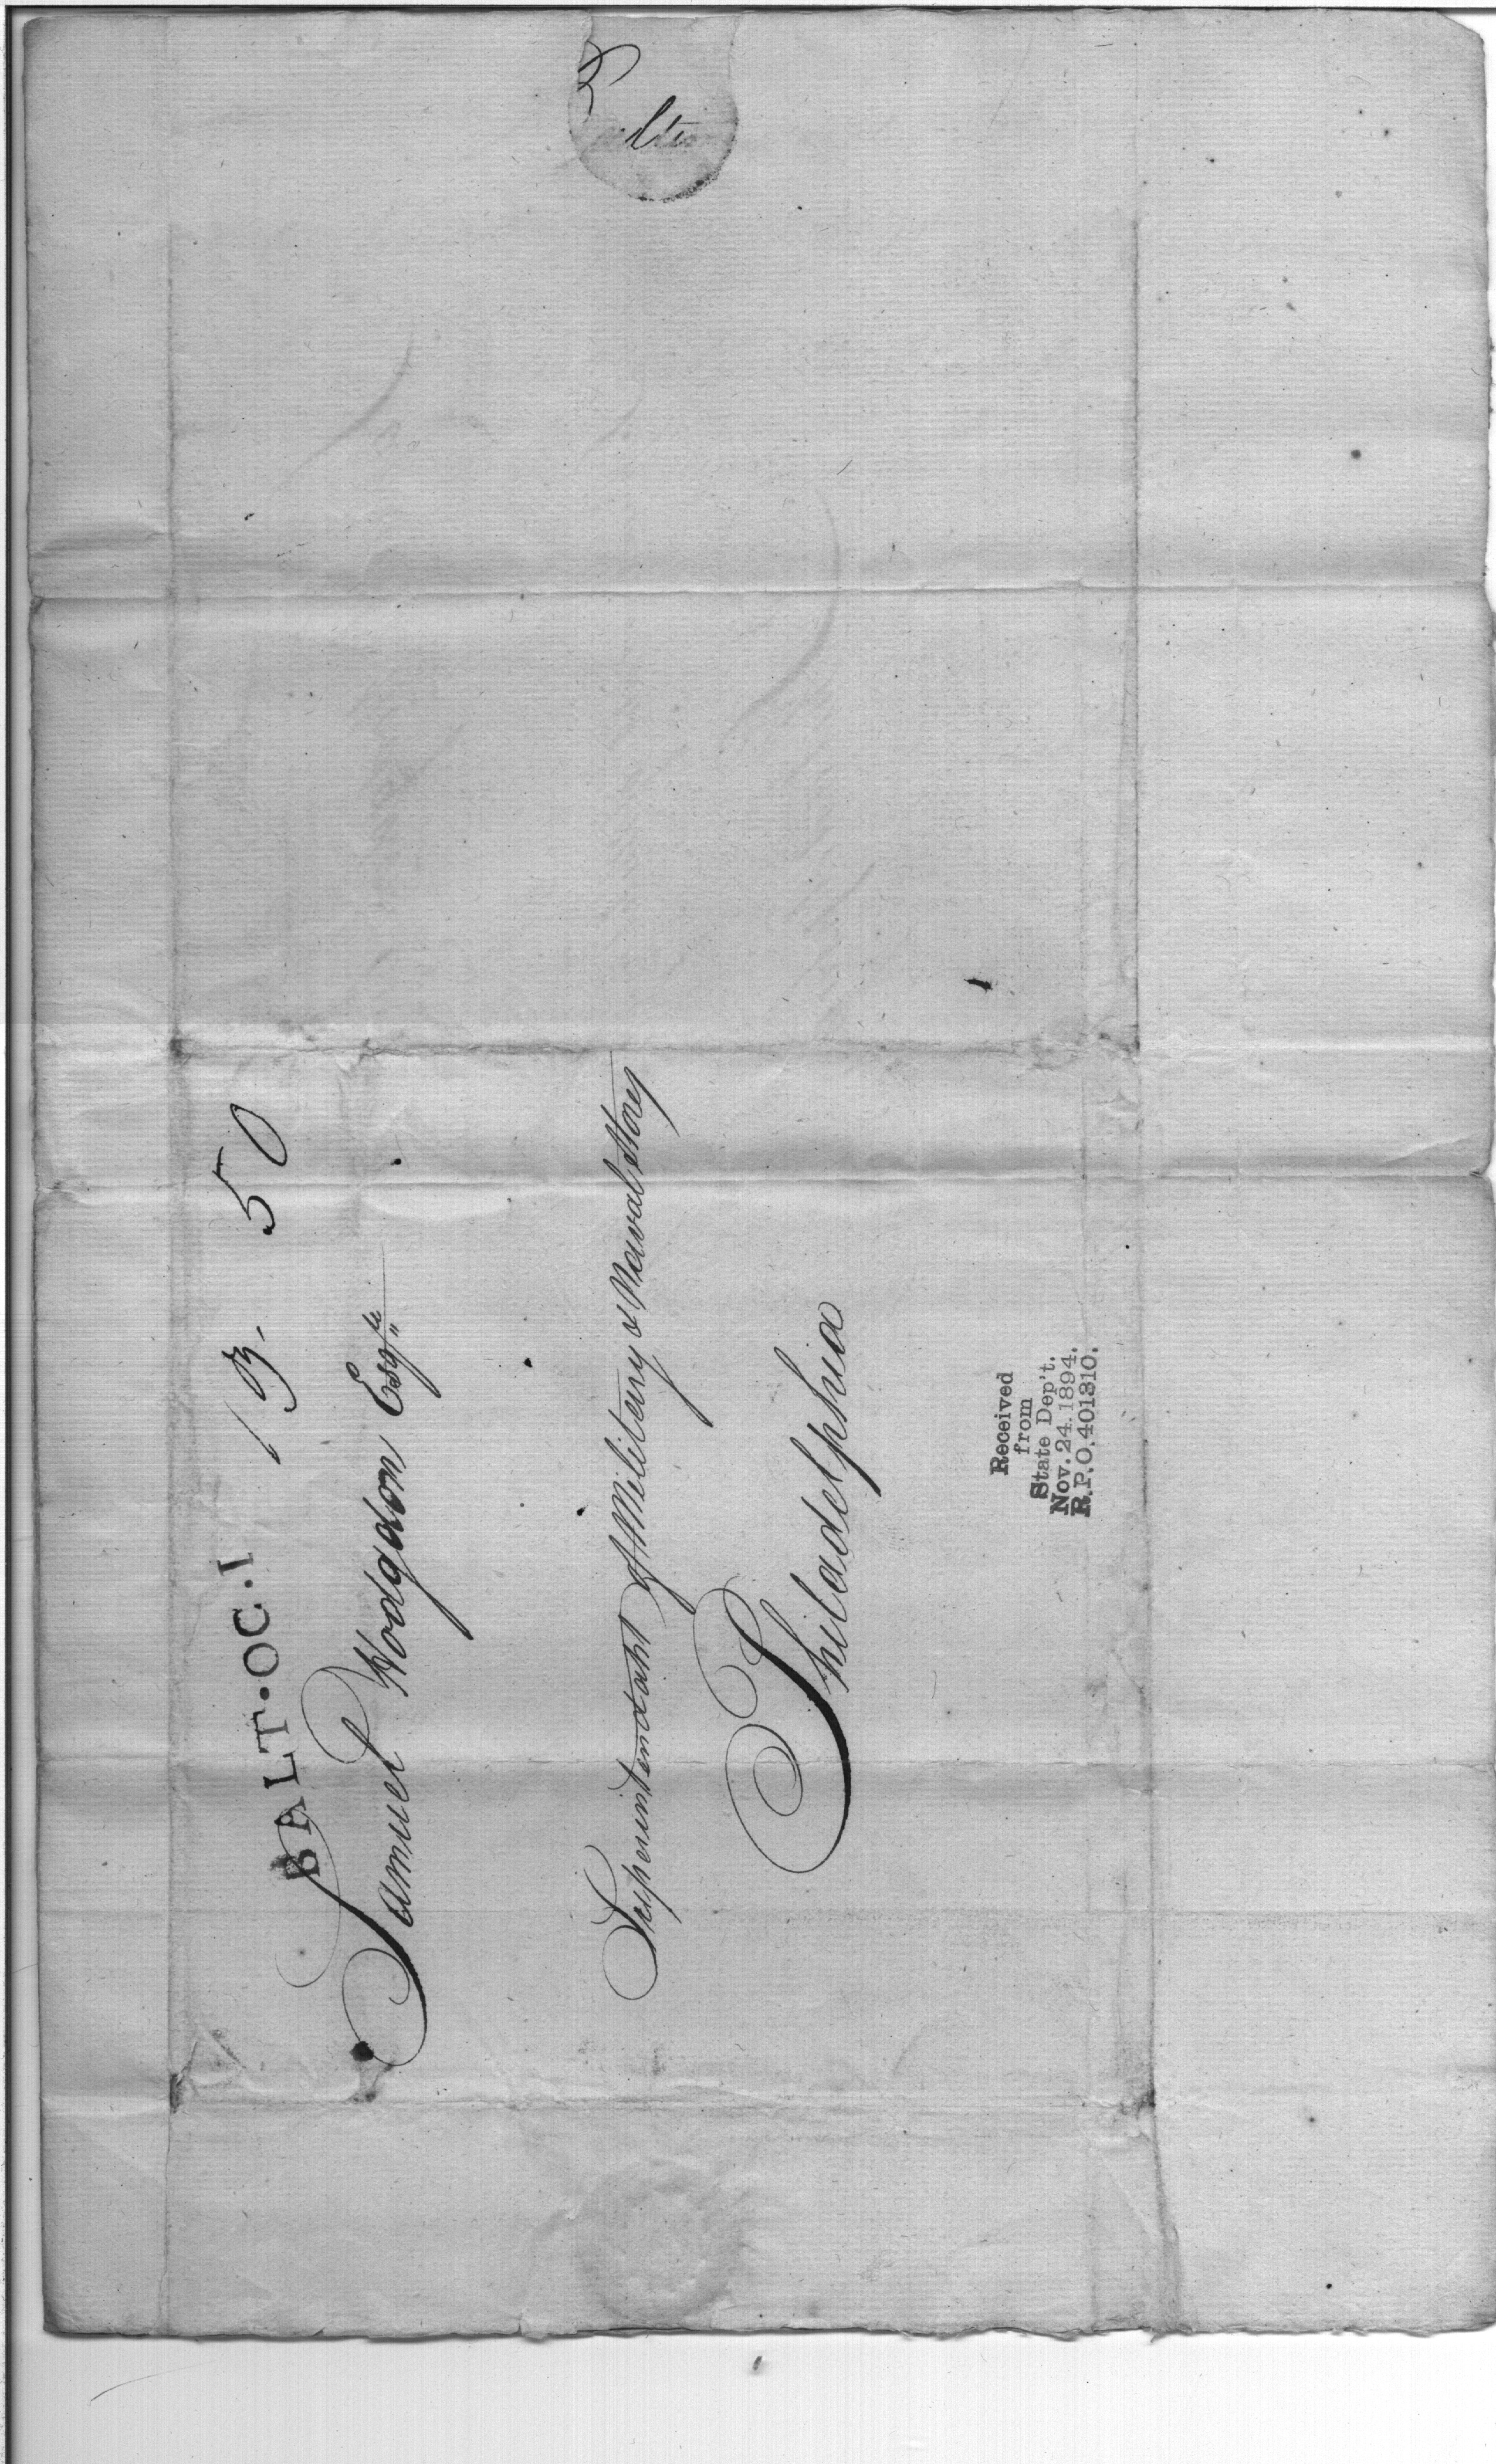 BALT·OC·1
50
Samuel Hodgdon Esqre
Superintendant of Military & Naval Stores
Philadelphia
Received
from
State Dep't.
Nov. 24. 1894.
R.P.O. 401310.